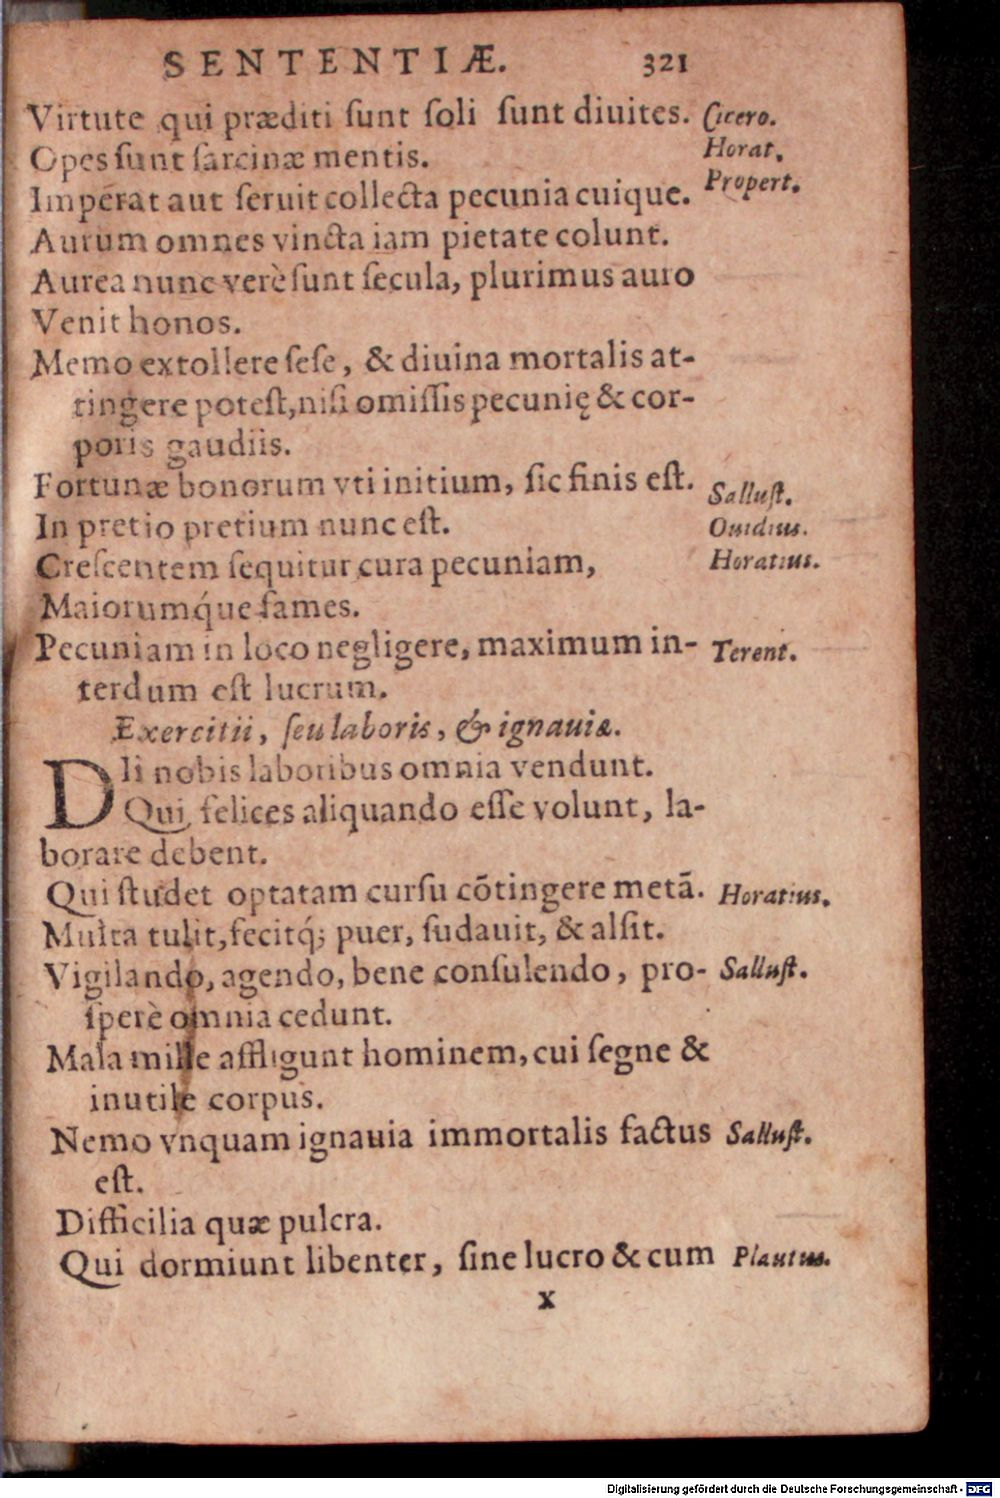 SENTENTIÆ. 321
Virtute qui præditi ſunt ſoli ſunt diuites. Cicero.
Opes ſunt ſarcinæ mentis. Horat.
Imperat aut ſeruit collecta pecunia cuique. Propert.
Aurum omnes vincta iam pietate colunt.
Aurea nunc verè ſunt ſecula, plurimus auro
Venit honos.
Memo extollere ſeſe, & diuina mortalis at-
tingere poteſt, niſi omiſſis pecunię & cor-
poris gaudiis.
Fortunæ bonorum vti initium, ſic finis eſt. Salluſt.
In pretio pretium nunc eſt. Ouidius.
Creſcentem ſequitur cura pecuniam, Horatius.
Maiorumq́ue fames.
Pecuniam in loco negligere, maximum in- Terent.
terdum eſt lucrum.
Exercitii, ſeu laboris, & ignauiæ.
DIi nobis laboribus omnia vendunt.
Qui felices aliquando eſſe volunt, la-
borare debent.
Qui ſtudet optatam curſu cōtingere metā. Horatius.
Multa tulit, fecitq́; puer, ſudauit, & alſit.
Vigilando, agendo, bene conſulendo, pro- Salluſt.
ſperè omnia cedunt.
Mala mille affligunt hominem, cui ſegne &
inutile corpus.
Nemo vnquam ignauia immortalis factus Salluſt.
eſt.
Difficilia quæ pulcra.
Qui dormiunt libenter, ſine lucro & cum Plautus.
x
Digitalisierung gefördert durch die Deutsche Forschungsgemeinschaft - DFG